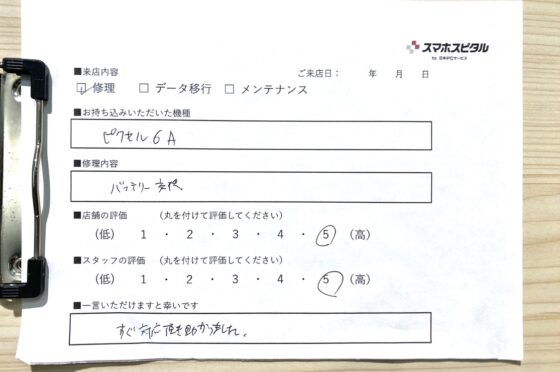 スマホスピタル
by 日本PCサービス
■来店内容
ご来店日： 年 月 日
☑ 修理 □ データ移行 □ メンテナンス
■お持ち込みいただいた機種
ピクセル6A
■修理内容
バッテリー交換
■店舗の評価 （丸を付けて評価してください）
（低） 1 ・ 2 ・ 3 ・ 4 ・ 5 （高）
■スタッフの評価 （丸を付けて評価してください）
（低） 1 ・ 2 ・ 3 ・ 4 ・ 5 （高）
■一言いただけますと幸いです
すぐ対応頂き助かりました。